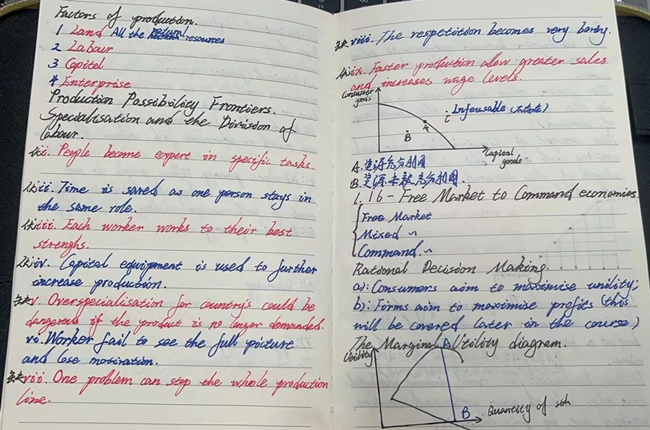 Factors of production.
1 Land All the natural resources
2 Labour
3 Capital
4 Enterprise
Production Possibility Frontiers.
Specialisation and the Division of
Labour.
优i. People become expert in specific tasks.
优ii. Time is saved as one person stays in
the same role.
优iii. Each worker works to their best
strenghs.
优iv. Capital equipment is used to further
increase production.
v. Overspecialisation for country's could be
dangerous if the product is no longer demanded.
vi. Worker fail to see the full picture
and lose motivation.
vii. One problem can stop the whole production
line.
viii. The respetition becomes very boring.
ix. Faster production allow greater sales
and increases wage levels.
Consumer
goods
Infeasable
A
B
Capital
goods
A. 资源充分利用
B. 资源未被充分利用.
1.16 - Free Market to Command economies.
Free Market
Mixed ~
Command ~
Rational Decision Making.
a): Consumers aim to maximise unility;
b): Forms aim to maximise profits (this
will be covered later in the course)
The Marginal Utility diagram.
Utility
A
B
Quantity of sth